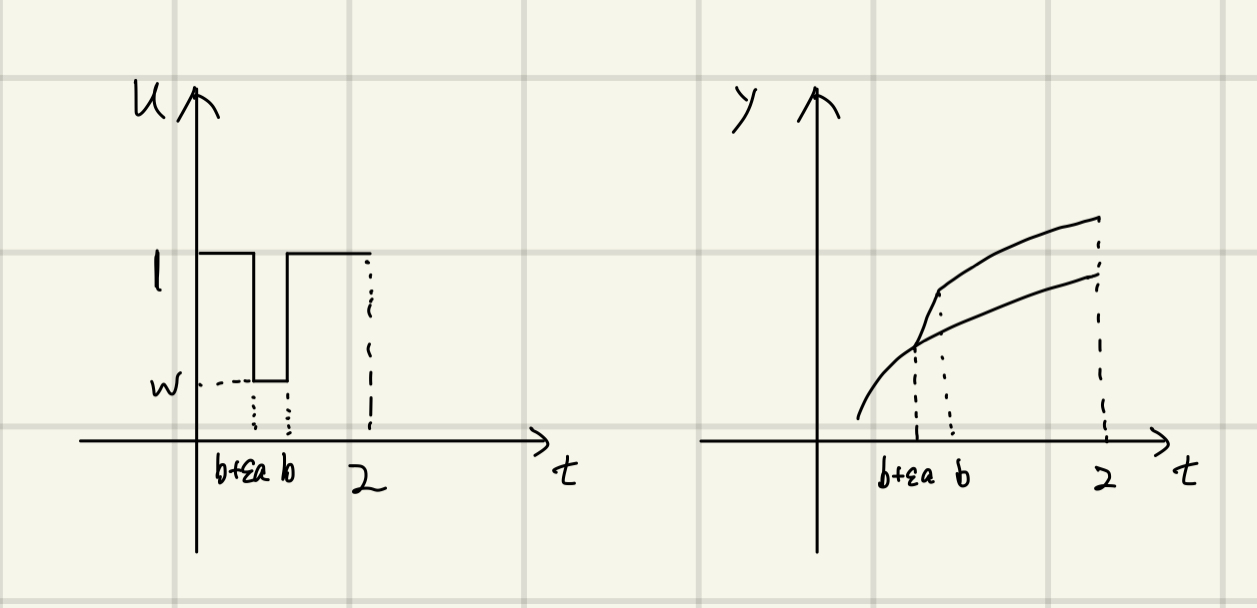 u
1
w
b+εa b 2 t
y
b+εa b 2 t